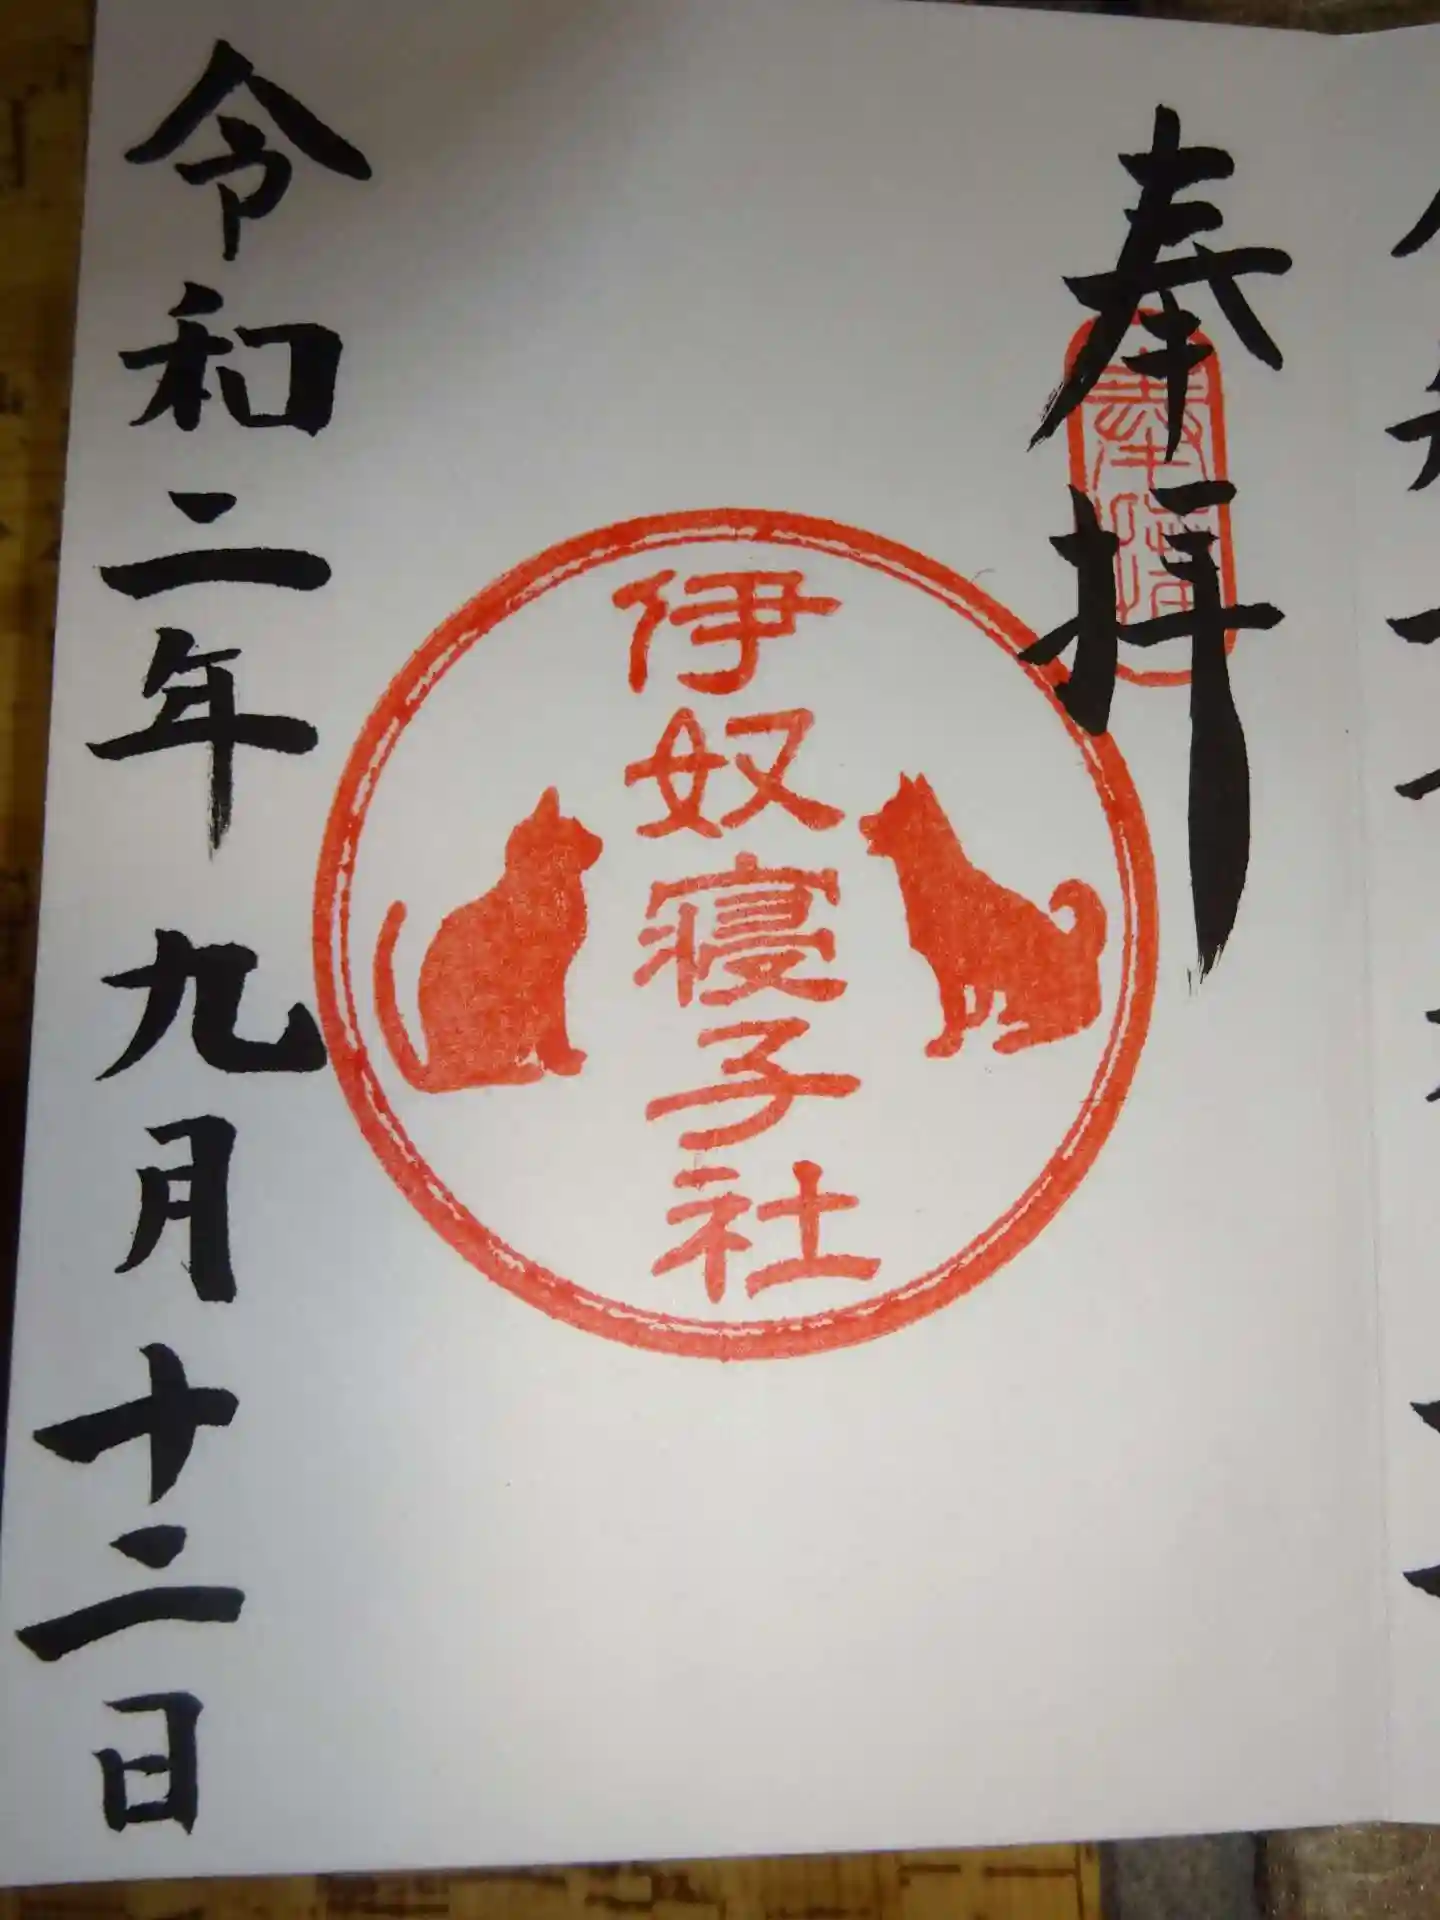 奉拝
奉拝
伊奴寝子社
令和二年九月十二日